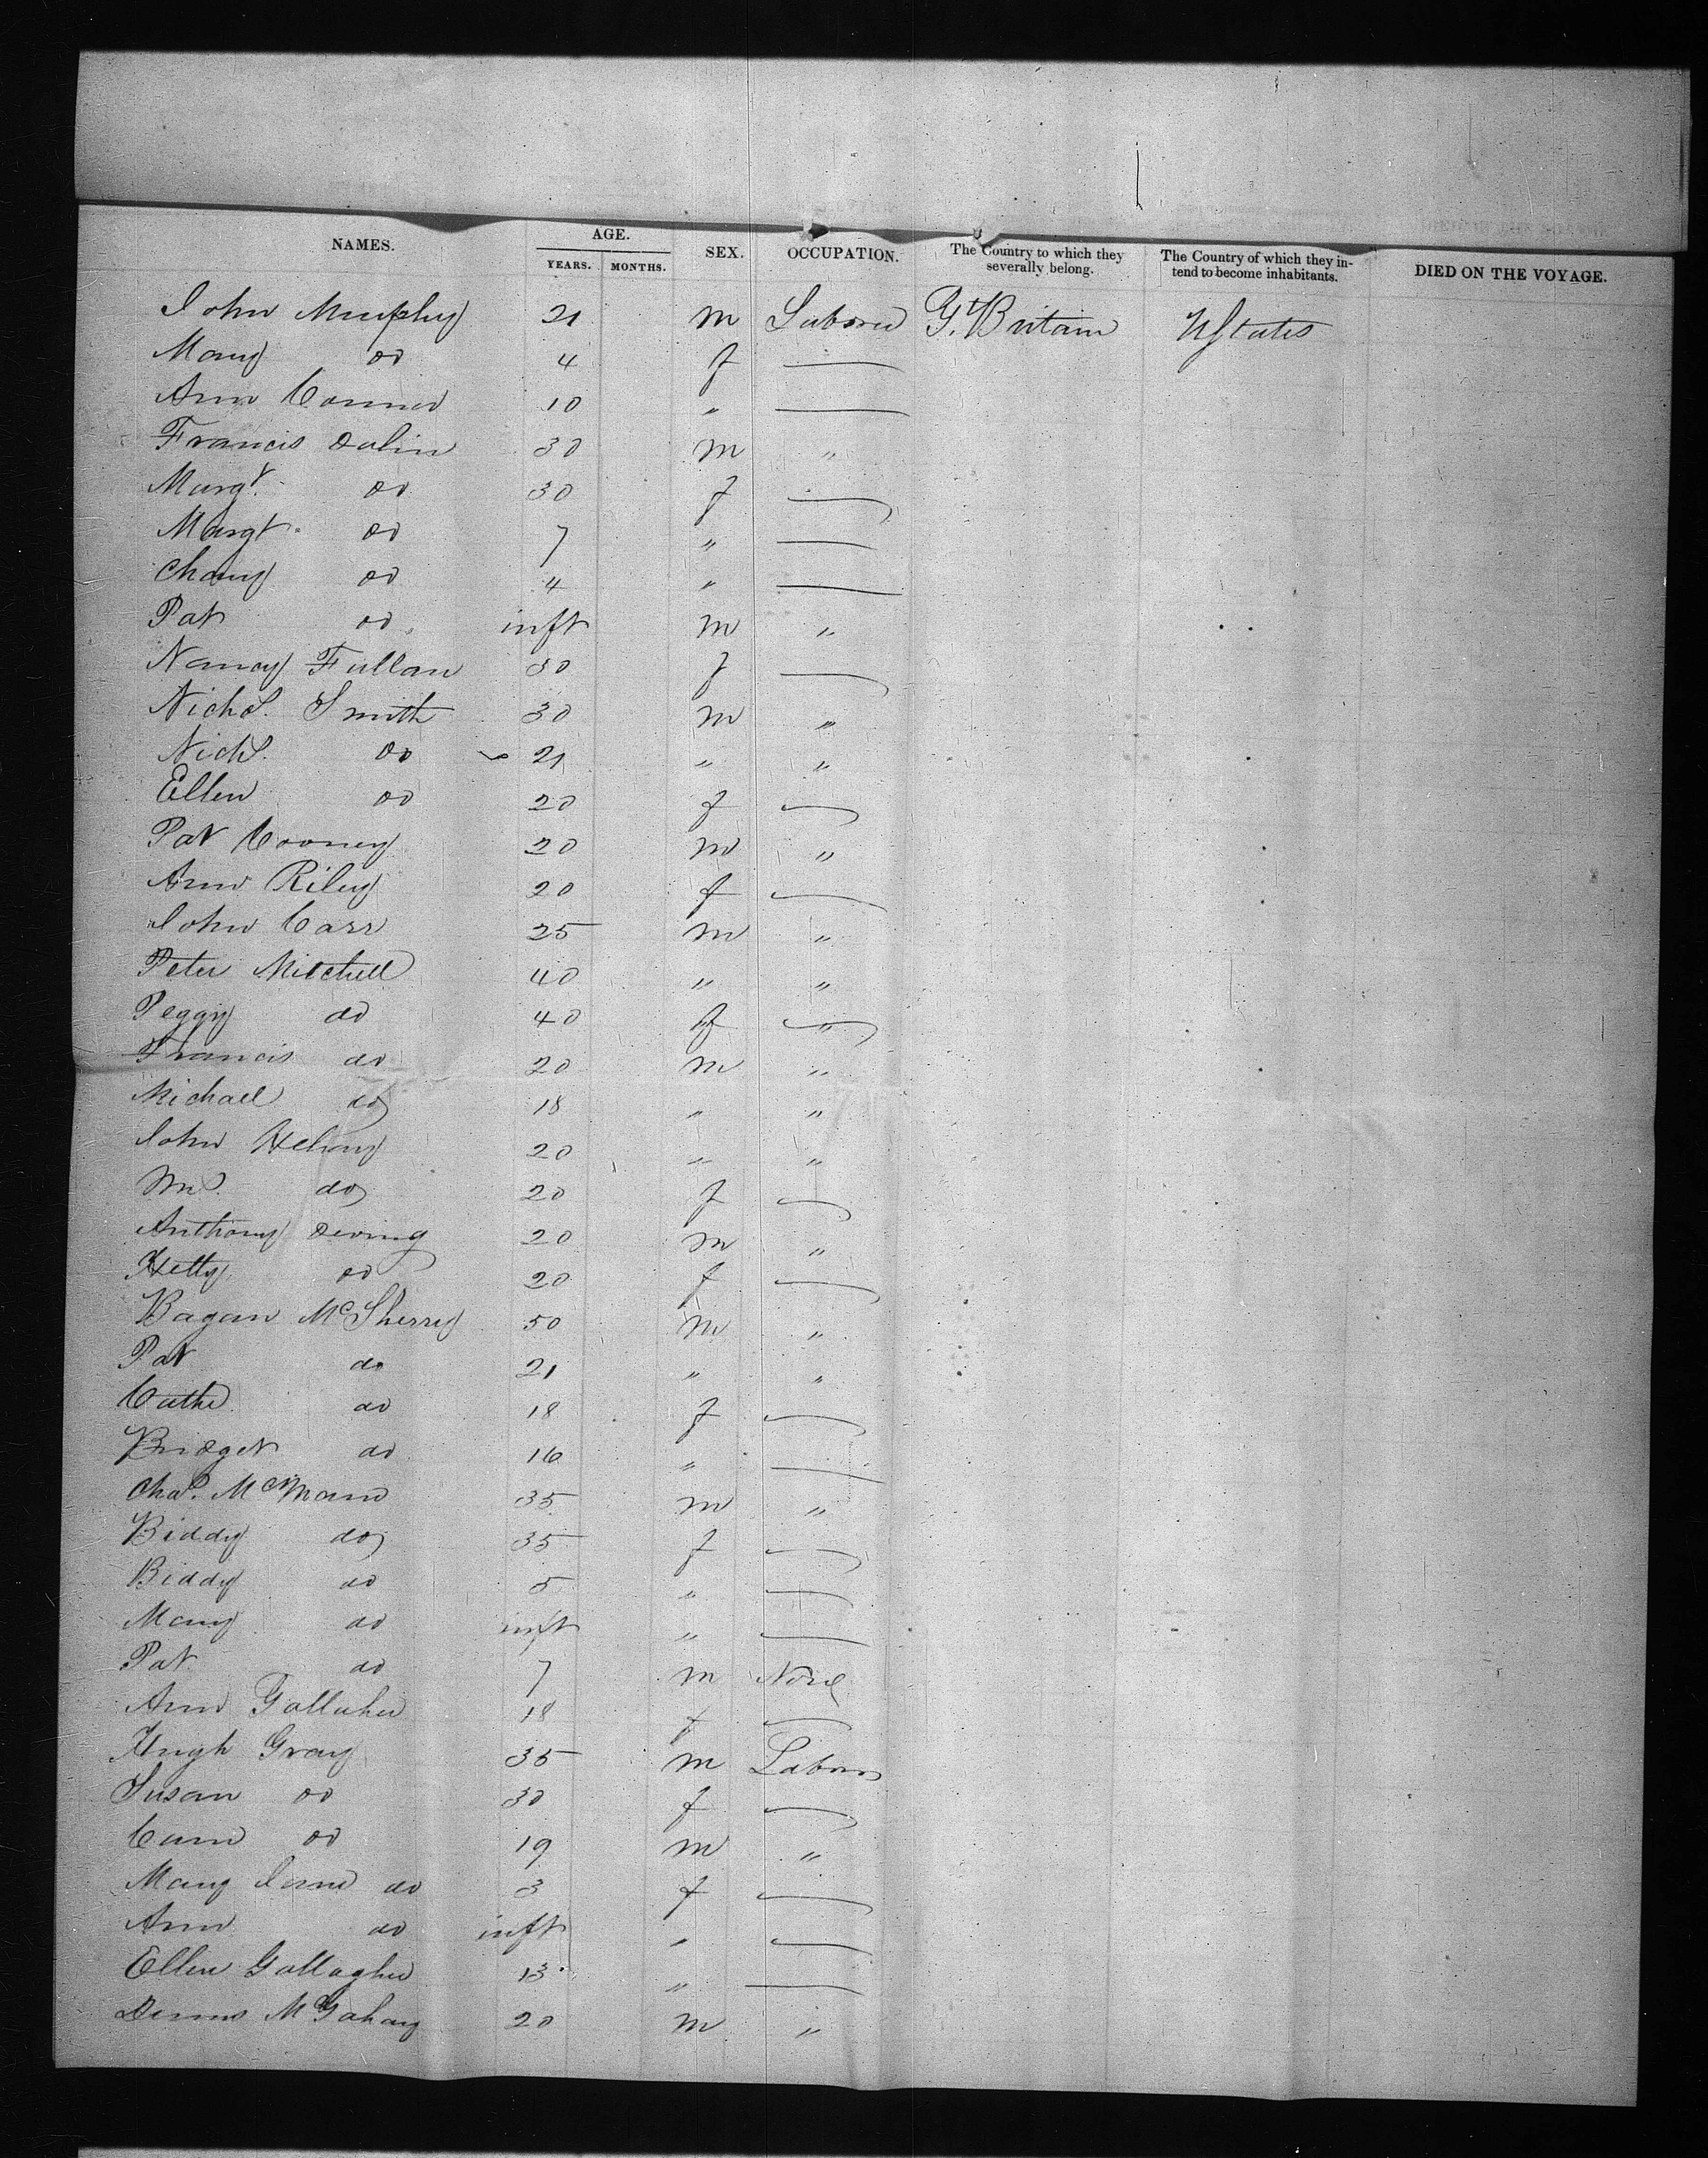 NAMES. AGE. SEX. OCCUPATION. The Country to which they severally belong. The Country of which they intend to become inhabitants. DIED ON THE VOYAGE.
YEARS. MONTHS.
John Murphy 21 m Laborer Gt Britain UStates
Mary do 4 f —
Ann Connor 10 " —
Francis Dolin 30 m "
Margt. do 30 f —
Margt. do 7 " —
Mary do 4 " —
Pat do inft m "
Nancy Fullan 30 f —
Nichs. Smith 30 m "
Nichs. do 21 " "
Ellen do 20 f —
Pat Cooney 20 m "
Ann Riley 20 f —
John Carr 25 m "
Peter Mitchell 40 " "
Peggy do 40 f "
Francis do 20 m "
Michael do 18 " "
John 20 " "
do 20 f —
Anthony 20 m "
Hetty do 20 f —
Bagan McSherry 50 m "
Pat do 21 " "
Cathe. do 18 f —
Bridget do 16 " —
Chas. McMann 35 m "
Biddy do 35 f —
Biddy do 5 " —
Mary do inft " —
Pat do 7 m None
Ann Gallaher 18 f —
Hugh Gray 35 m Labor
Susan do 30 f —
do 19 m "
Mary Jane do 3 f —
Ann do inft " —
Ellen Gallagher 13 " —
Dennis McGahay 20 m "